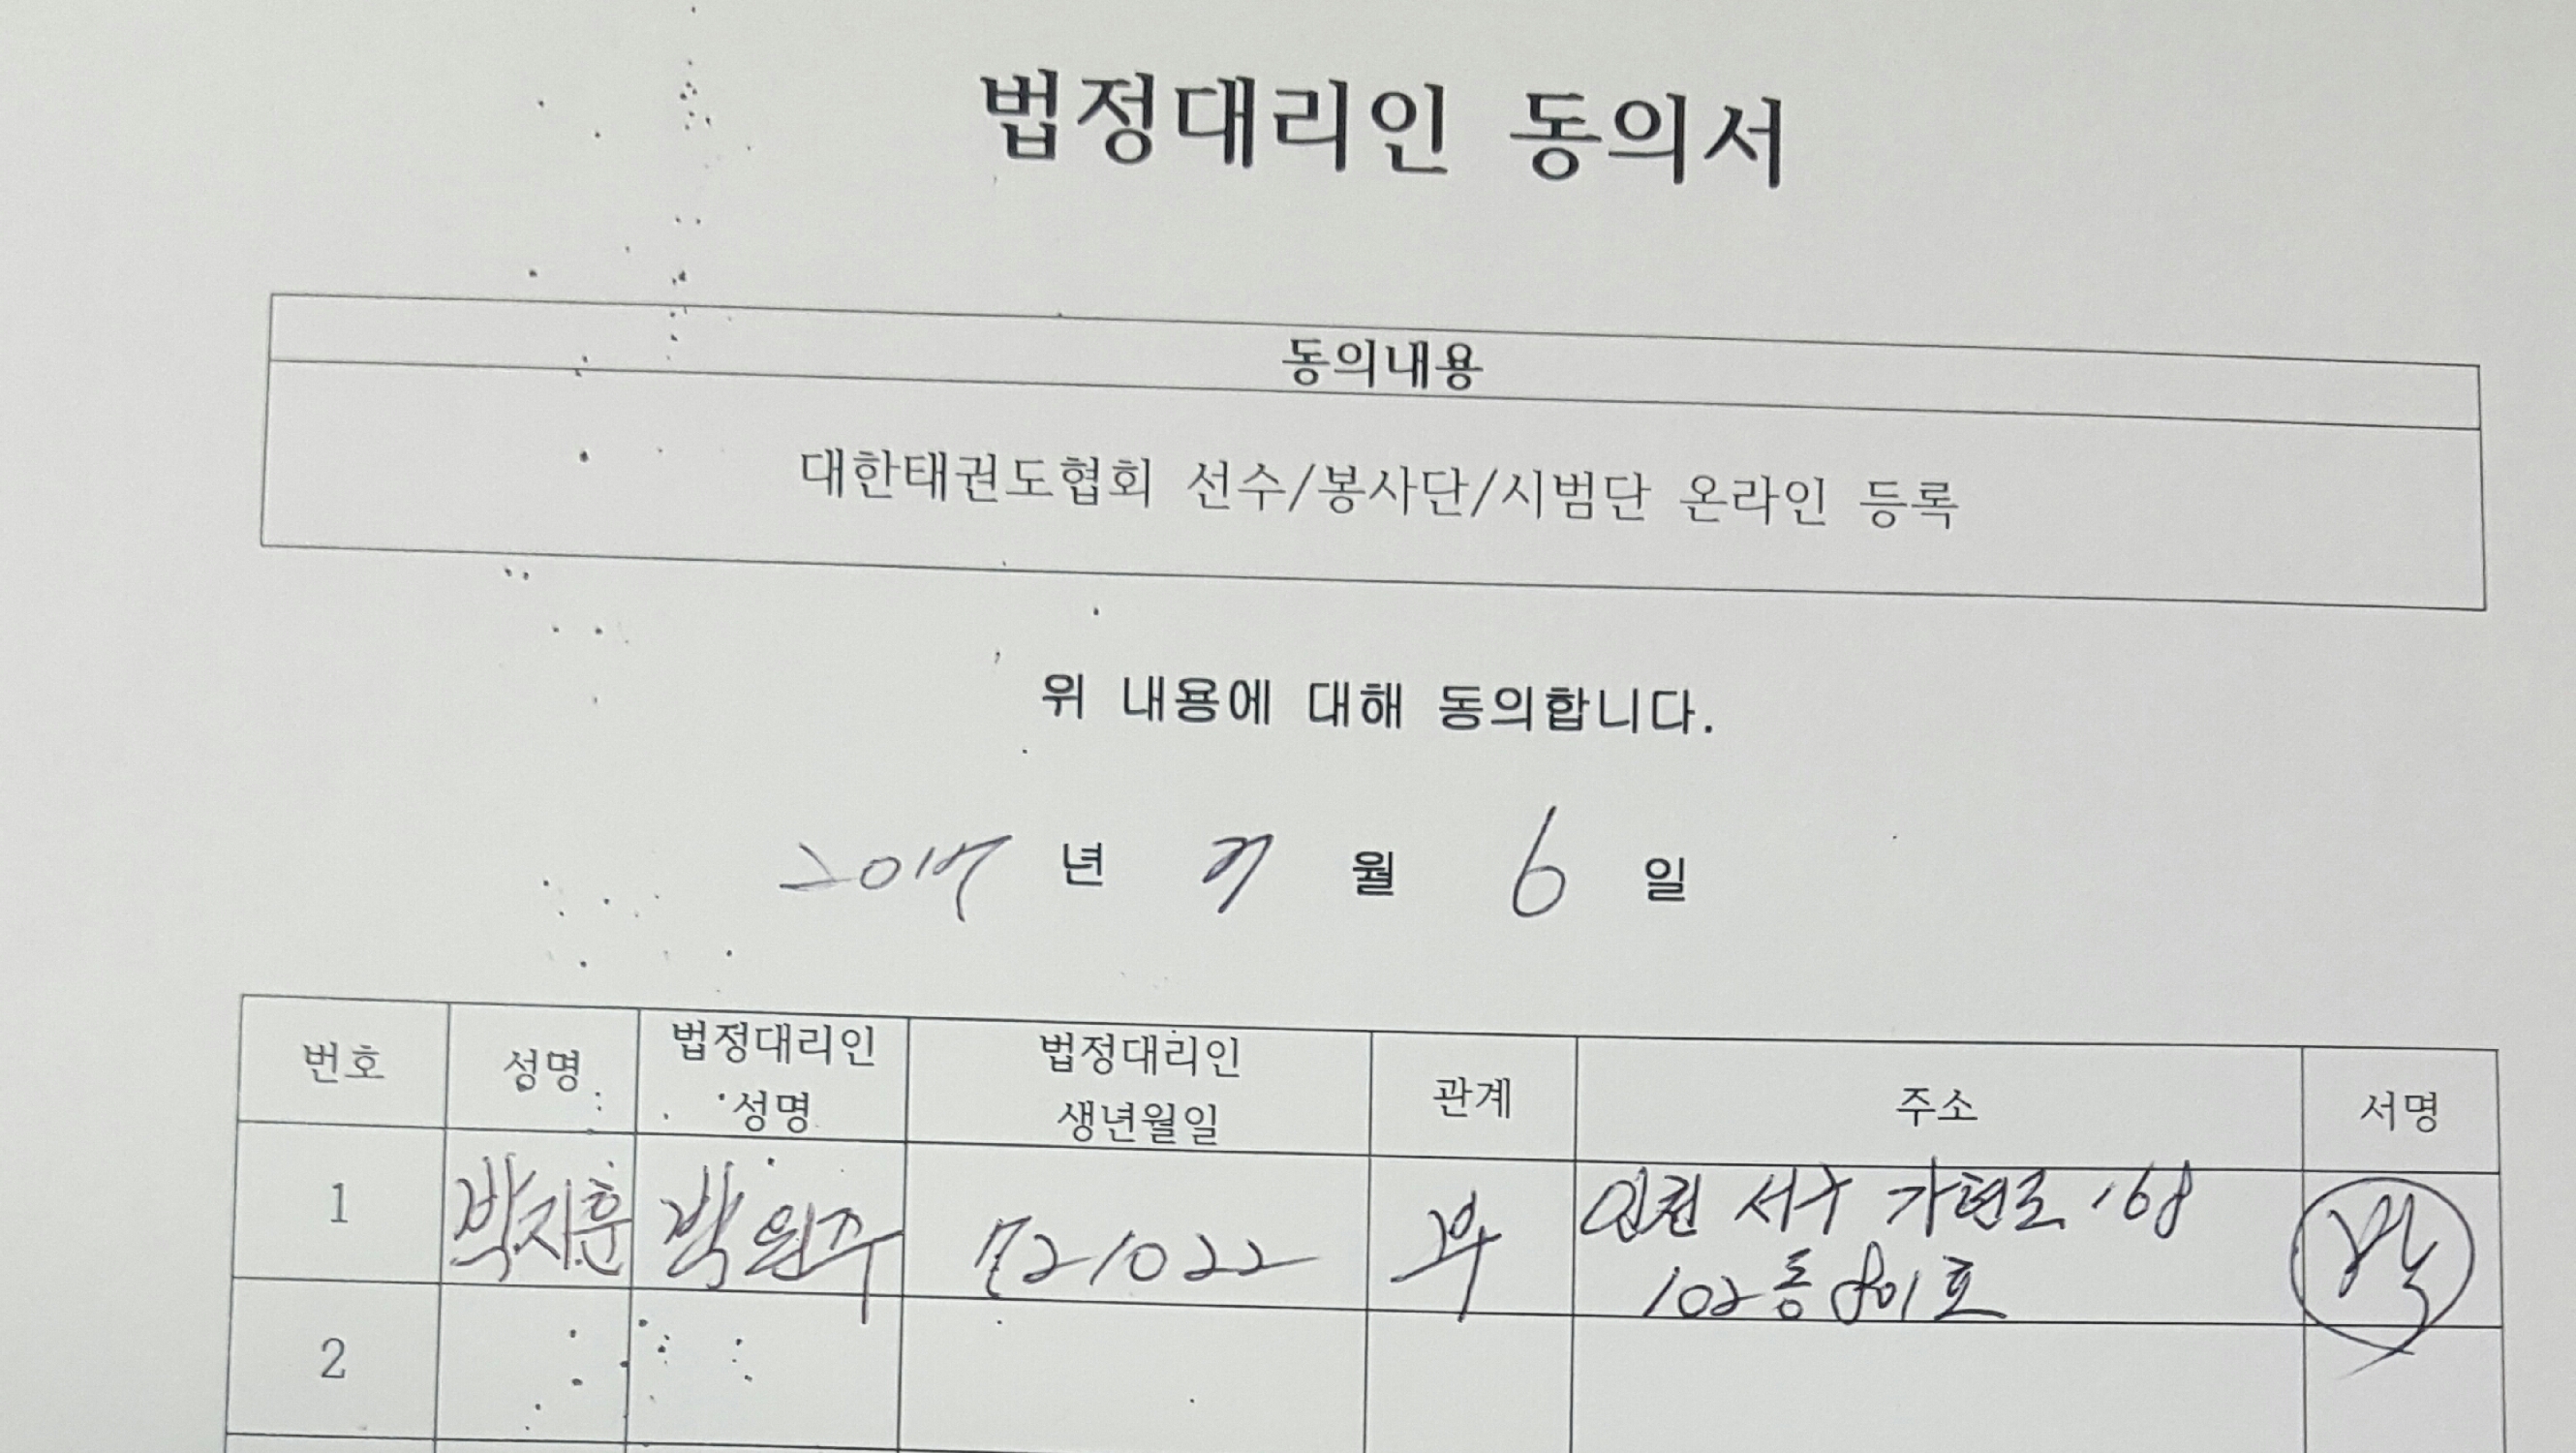 법정대리인 동의서
동의내용
대한태권도협회 선수/봉사단/시범단 온라인 등록
위 내용에 대해 동의합니다.
2017 년 7 월 6 일
번호 성명 법정대리인 성명 법정대리인 생년월일 관계 주소 서명
1 박지훈 박원주 721022 부 인천 서구 가현로 168
102동 801호
2